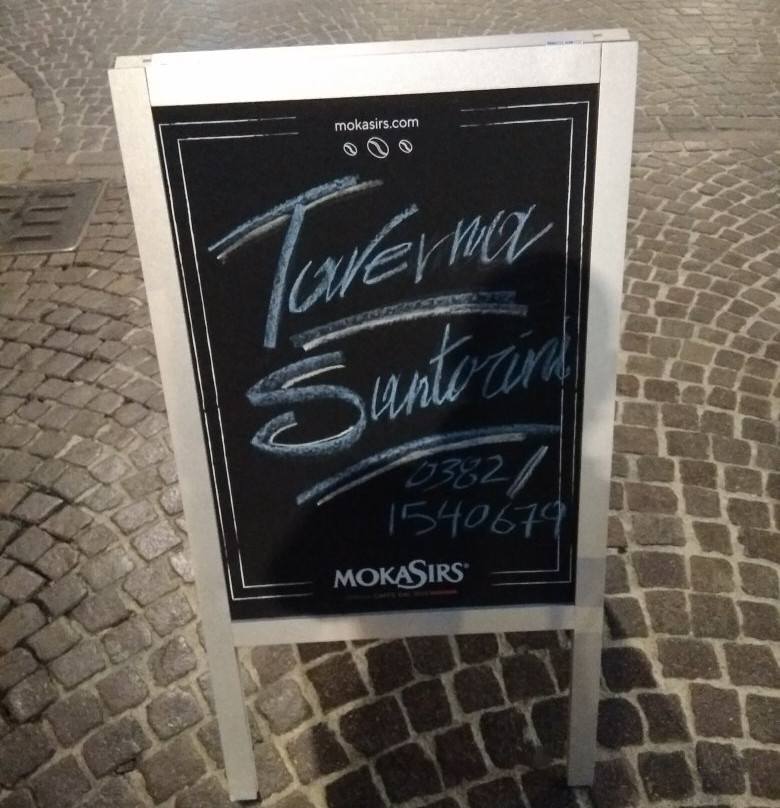 mokasirs.com
Taverna
Santorini
0382/
1540679
MOKASIRS®